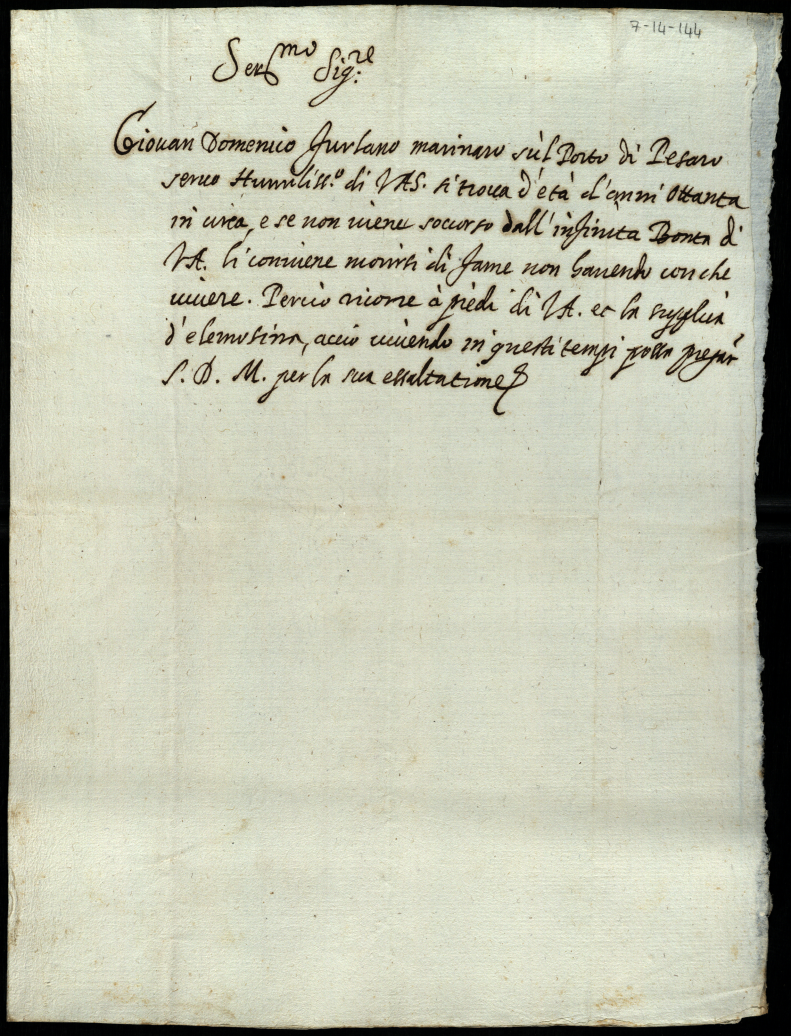 7-14-144
Ser.mo Sig.re
Giouan Domenico Furlano marinaro sùl Porto di Pesaro
seruo Humiliss.o di V.A.S. si troua d'età d'anni Ottanta
in circa, e se non uiene soccorso dall'infinita Bontà di
V.A. li conuiene morirsi di fame non hauendo con che
uiuere. Perciò ricorre à piedi di V.A. et la supplica
d'elemosina, acciò uiuendo in questi tempi possa pregar
S. D. M. per la sua essaltatione